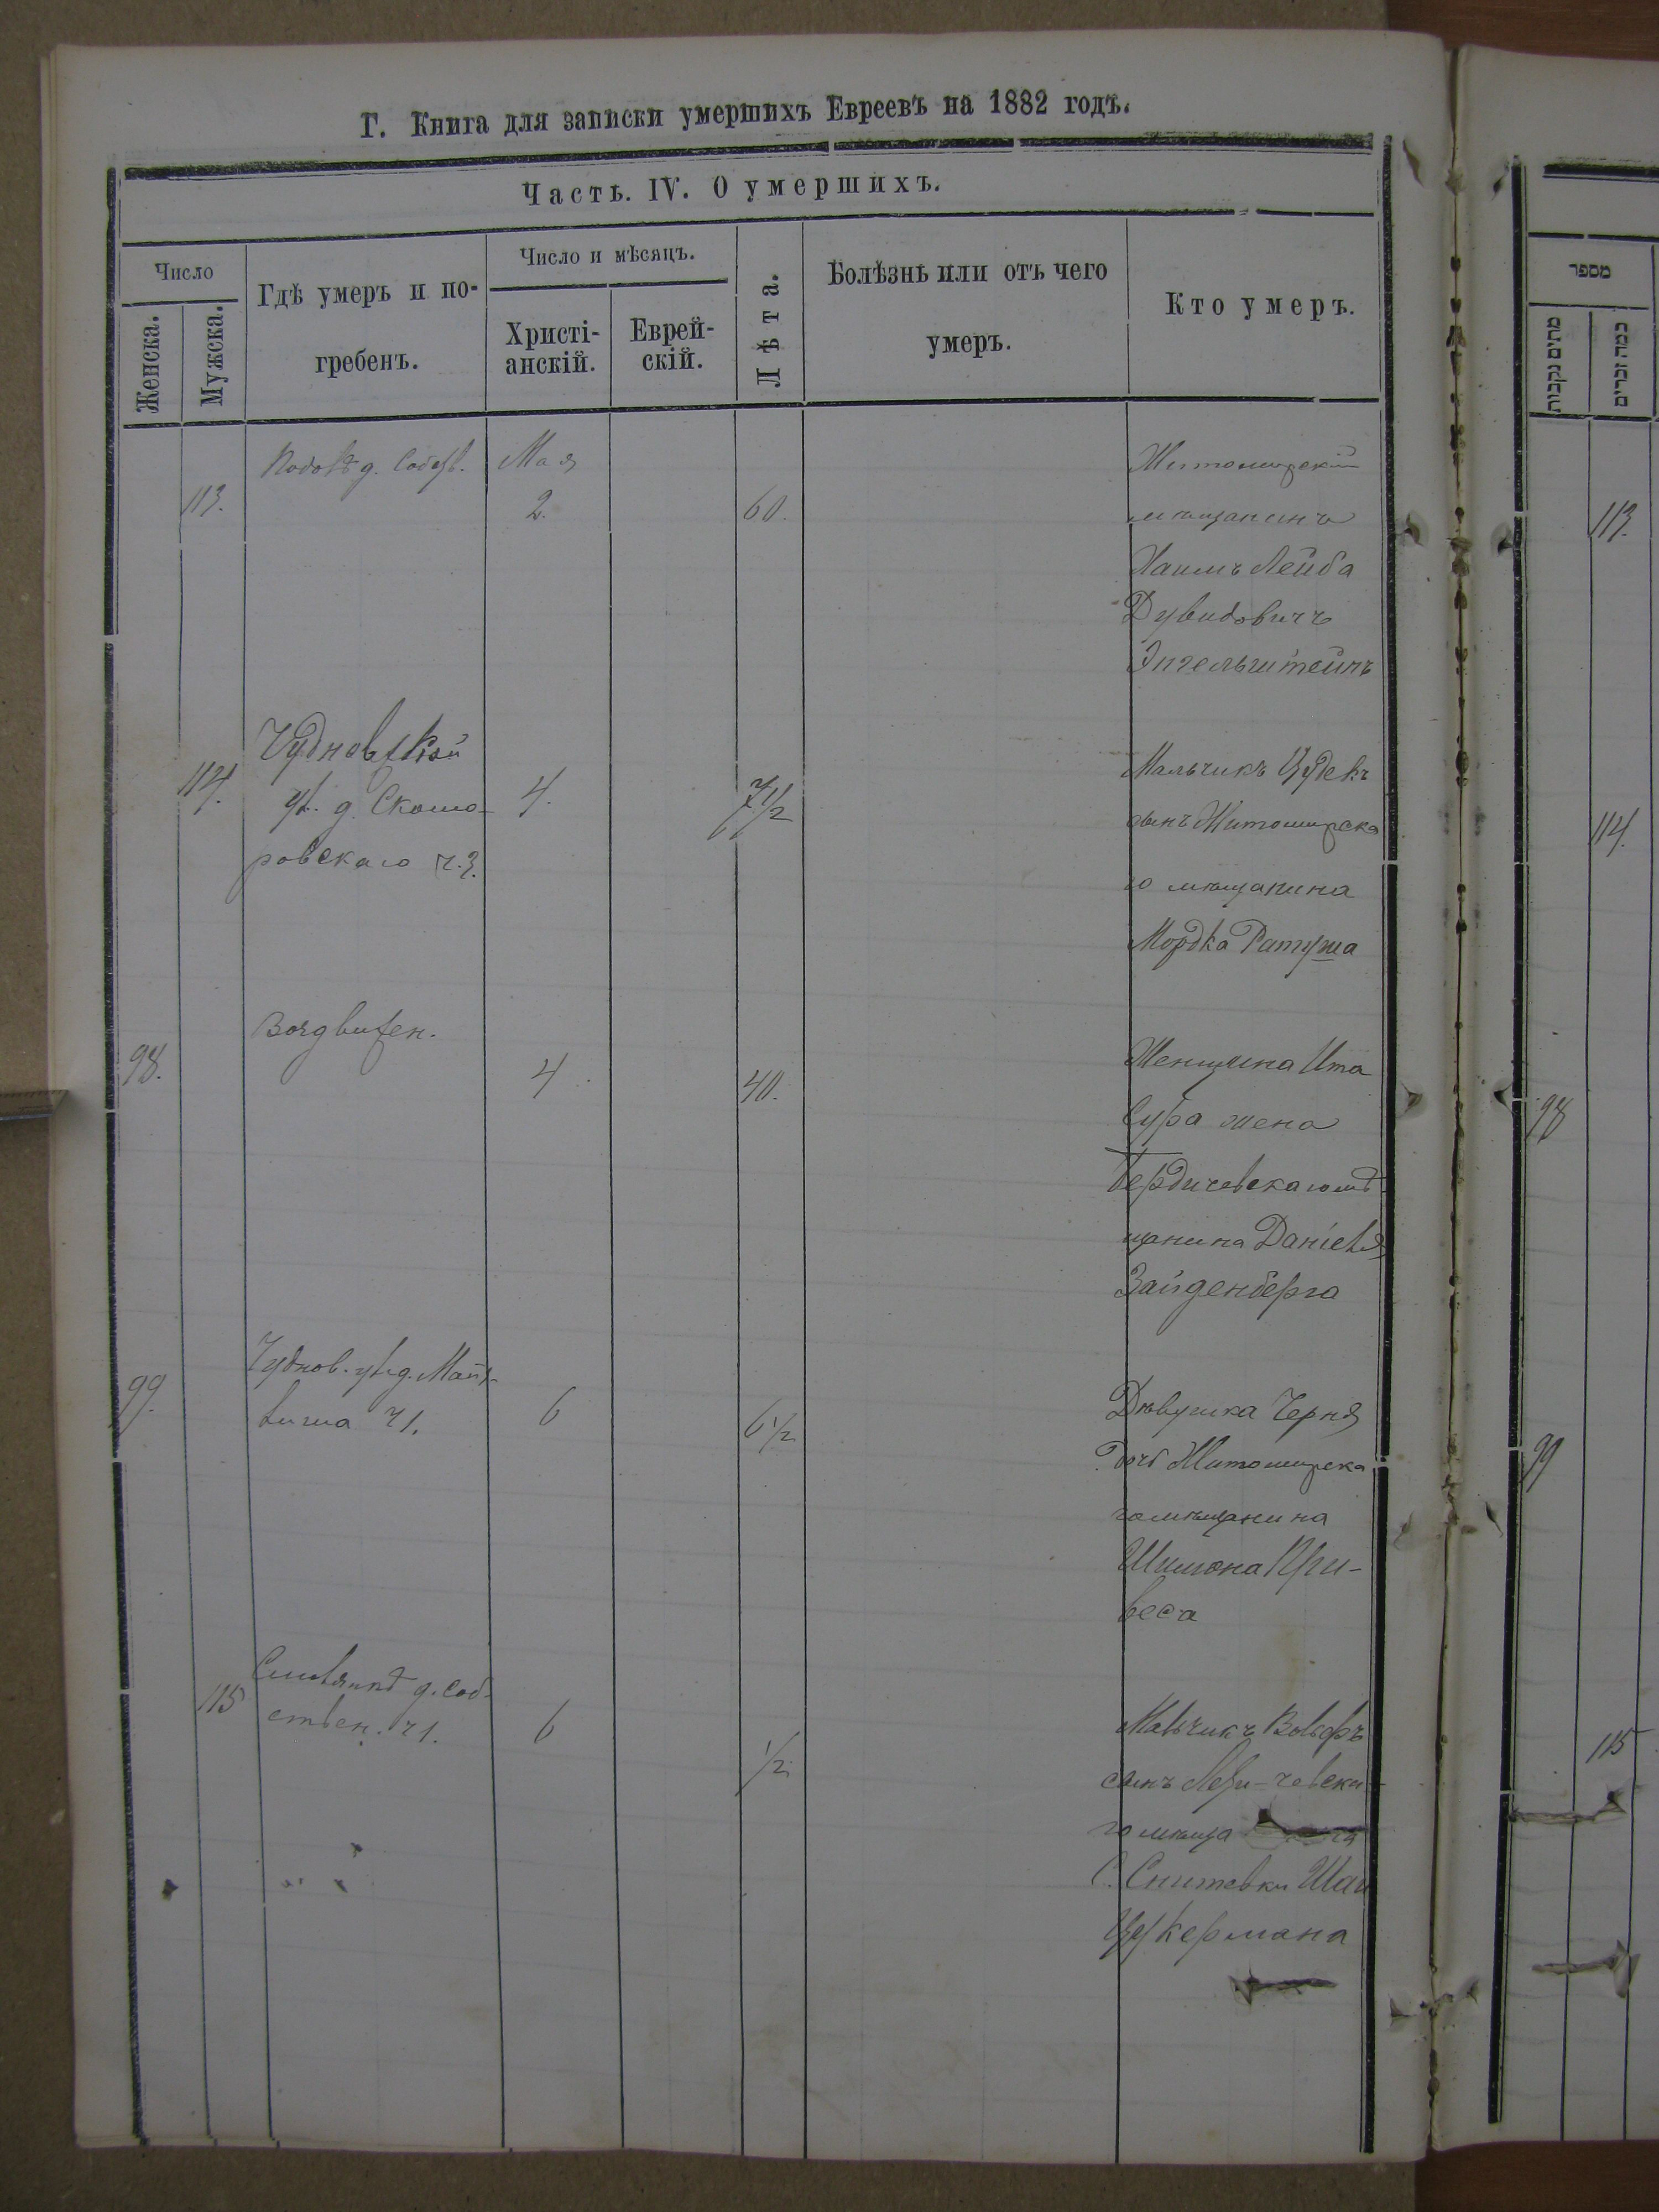 Г. Книга для записки умершихъ Евреевъ на 1882 годъ.
Часть. IV. О умершихъ.
Число
Женска.
Мужска.
Гдѣ умеръ и по-
гребенъ.
Число и мѣсяцъ.
Христі-
анскій.
Еврей-
скій.
Лѣта.
Болѣзнь или отъ чего
умеръ.
Кто умеръ.
113.
д. Собств.
Мая
2.
60.
Житомирскій
мѣщанинъ
Хаимъ Лейба
Дувидовичъ
Энгельштейнъ
114.
Чудновской
ул. д. Скомо-
ровскаго ч. 3.
4.
7 1/2
Мальчикъ Цудекъ
сынъ Житомирска
го мѣщанина
Мордка Ратужа
98.
4.
40.
Женщина Ита
Сура жена
Бердичевскаго мѣ-
щанина Даніеля
Зайденберга
99.
Чуднов. ул. д.
ч 1.
6
6 1/2
Дѣвушка Черня
дочь Житомирска
го мѣщанина
Шимона Кри-
веса
115
д. соб-
ствен. ч 1.
6
1/2.
Мальчикъ Вольфъ
сынъ
го мѣща
С. Снитевки Шаи
Цукермана
מספר
מתים נקבות
כמה זכרים
113.
114.
98
99
115